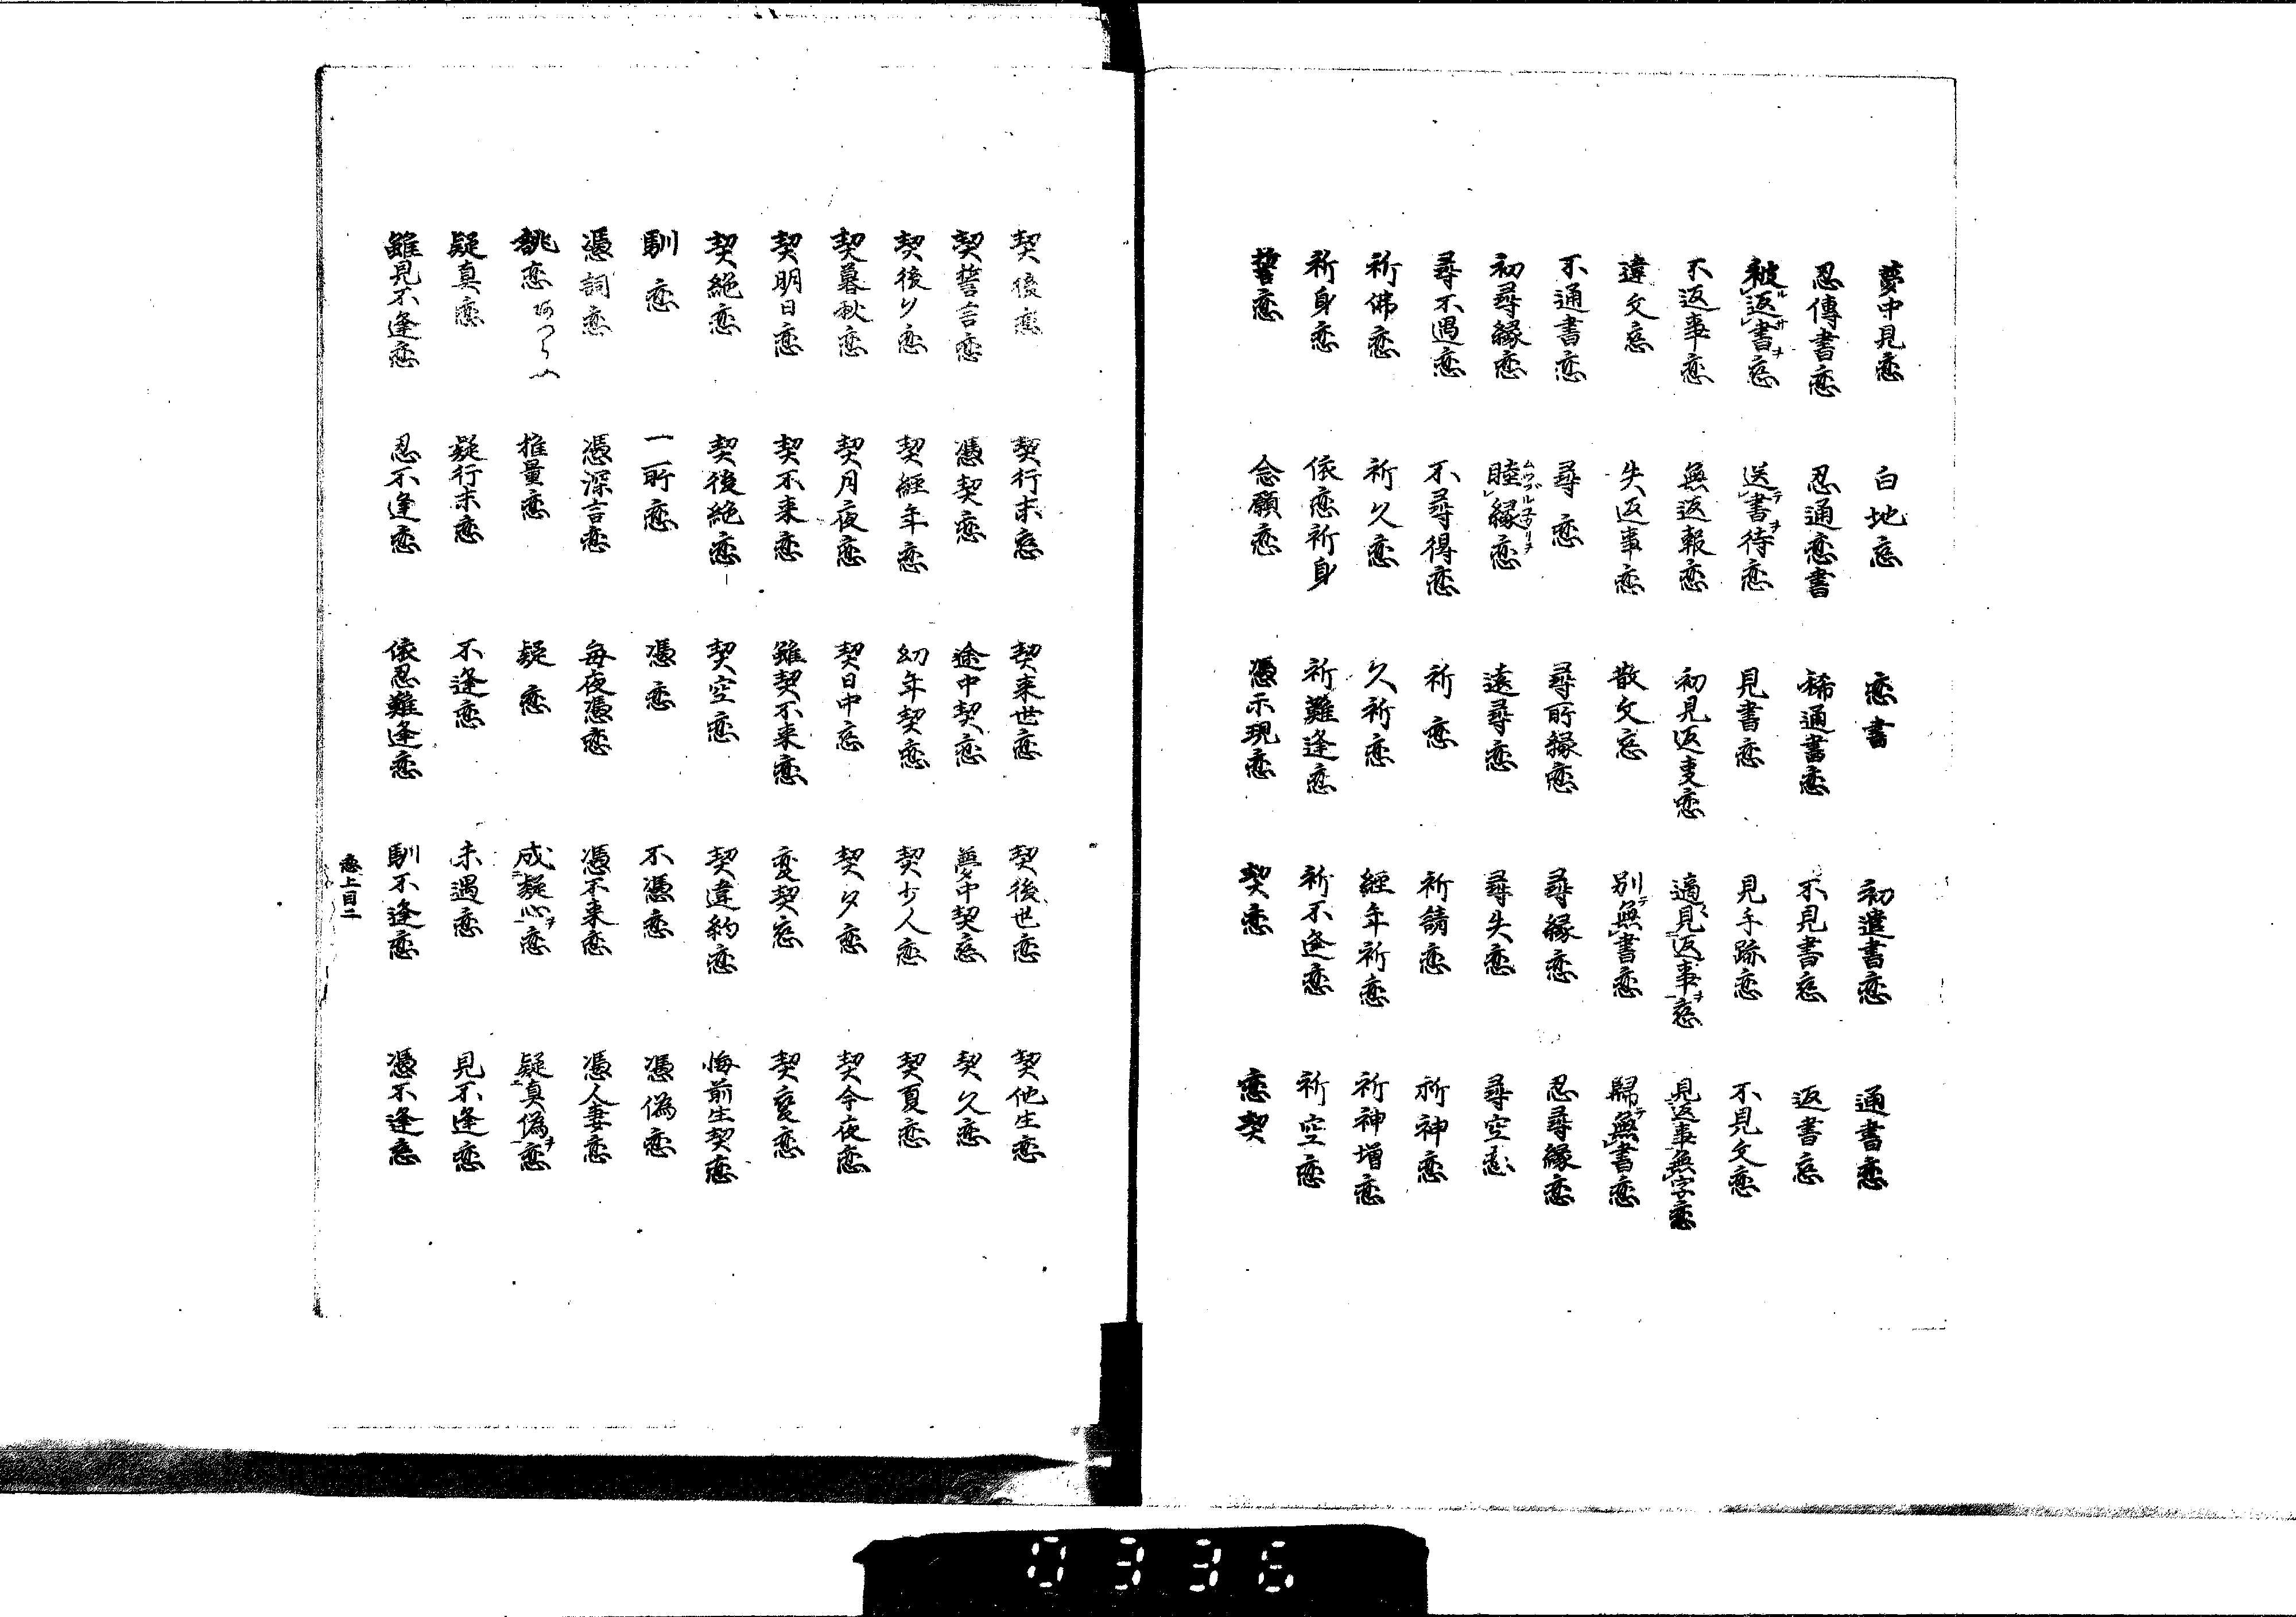 夢中見恋　白地恋　恋書　初遣書恋　通書恋
忍傳書恋　忍通恋書　稀通書恋　不見書恋　返書恋
被返書恋　送書待恋　見書恋　見手跡恋　不見文恋
不返事恋　無返報恋　初見返事恋　適見返事恋　見返事無字恋
違文恋　失返事恋　散文恋　別無書恋　帰無書恋
不通書恋　尋恋　尋所縁恋　尋縁恋　忍尋縁恋
初尋縁恋　睦縁恋　遠尋恋　尋失恋　尋空恋
尋不遇恋　不尋得恋　祈恋　祈請恋　祈神恋
祈佛恋　祈久恋　久祈恋　経年祈恋　祈神増恋
祈身恋　依恋祈身　祈難逢恋　祈不逢恋　祈空恋
誓恋　念願恋　憑示現恋　契恋　恋契
契後恋　契行末恋　契来世恋　契後世恋　契他生恋
契誓言恋　憑契恋　途中契恋　夢中契恋　契久恋
契後夕恋　契経年恋　幼年契恋　契少人恋　契夏恋
契暮秋恋　契月夜恋　契日中恋　契夕恋　契今夜恋
契明日恋　契不来恋　雖契不来恋　変契恋　契変恋
契絶恋　契後絶恋　契空恋　契違約恋　悔前生契恋
馴恋　一所恋　憑恋　不憑恋　憑偽恋
憑詞恋　憑深言恋　毎夜憑恋　憑不来恋　憑人妻恋
誂恋　推量恋　疑恋　成疑心恋　疑真偽恋
疑真恋　疑行末恋　不逢恋　未遇恋　見不逢恋
雖見不逢恋　忍不逢恋　依忍難逢恋　馴不逢恋　憑不逢恋
恋上目二
0336